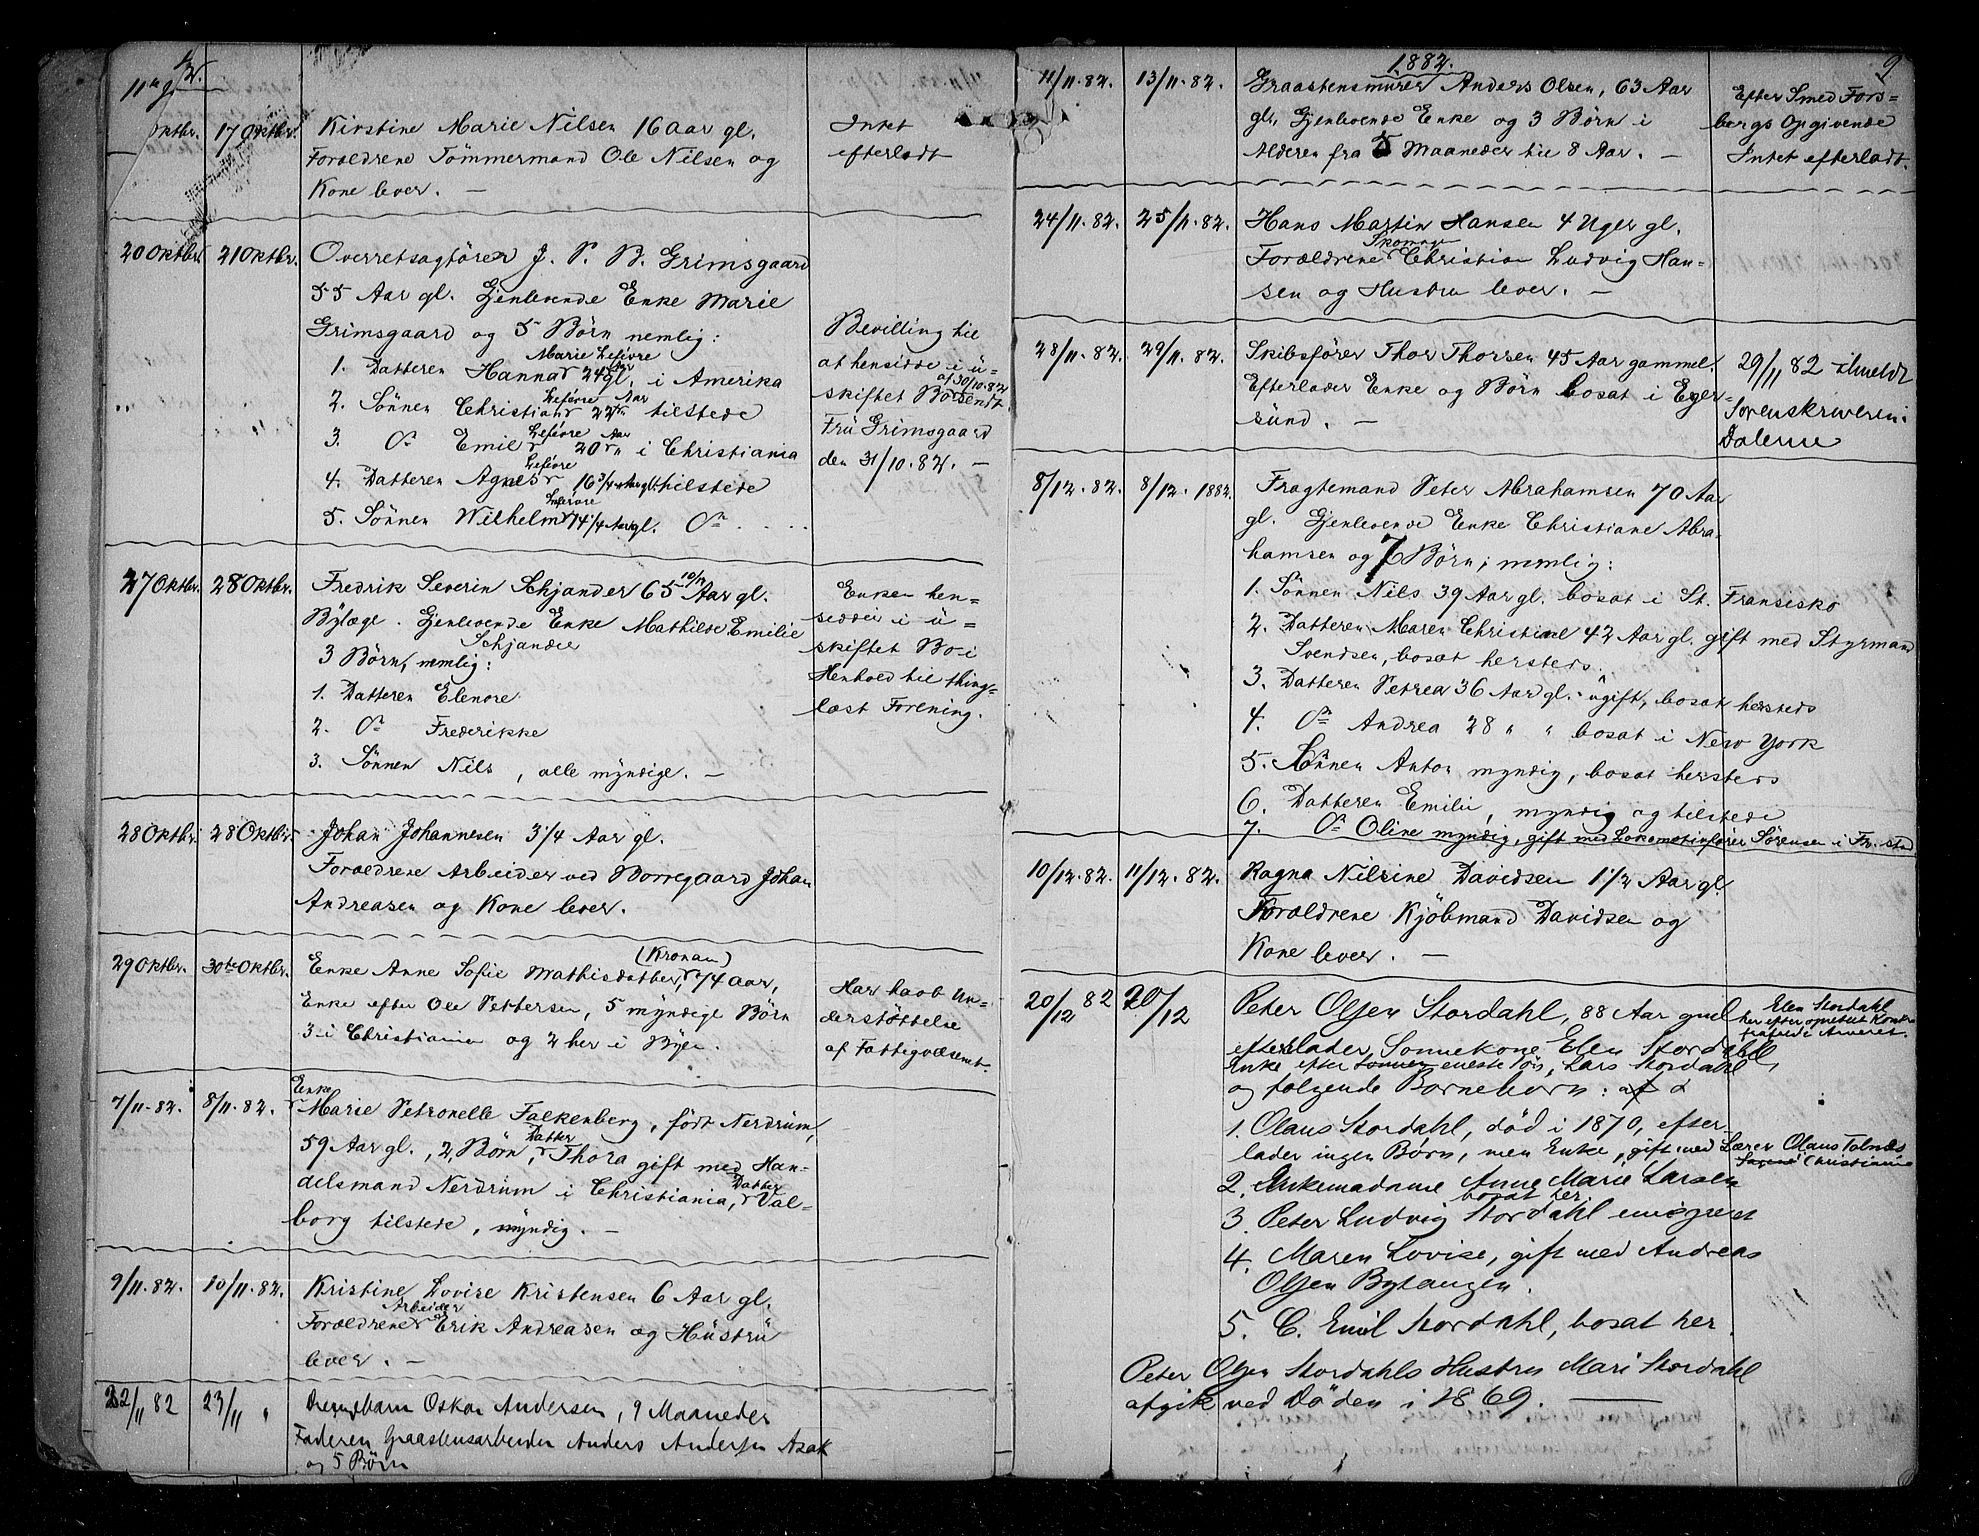 17 Oktbr. Kirstine Marie Nilsen 16 Aar gl. Intet
Forældrene Tömmermand Ole Nilsen og efterladt
Kone lever. —
20 Oktbr. 21 Oktbr. Overretsagfører J. P. B. Grimsgaard
55 Aar gl. Gjenlevende Enke Marie
Grimsgaard og 5 Børn nemlig:
1. Datteren Hanna Marie Lefèvre 24 Aar gl. i Amerika
2. Sönnen Christian Lefèvre 22 Aar tilstede
3. Do Emil Lefèvre 20 Aar i Christiania
4. Datteren Agnes Lefèvre 16 3/4 Aar gl. tilstede
5. Sönnen Wilhelm Lefèvre 14 1/4 Aar gl. Do
Bevilling til
at hensidde i u=
skiftet Bo af 30/10.82 tilsendt
Fru Grimsgaard
den 31/10.82. —
27 Oktbr. 28 Oktbr. Fredrik Severin Schjander 65 10/12 Aar gl.
Bylæge. Gjenlevende Enke Mathilde Emilie
Schjander
3 Börn, nemlig:
1. Datteren Elenore
2. Do Frederikke
3. Sönnen Nils, alle myndige. —
Enken hen=
sidder i u=
skiftet Bo i
Henhold til thing=
læst Forening.
28 Oktbr. 28 Oktbr. Johan Johannesen 3 1/4 Aar gl.
Forældrene Arbeider ved Borregaard Johan
Andreasen og Kone lever.
29 Oktbr. 30te Oktbr. Enke Anne Sofie Mathisdatter, (Kronan) 74 Aar,
Enke efter Ole Pettersen, 5 myndige Börn
3 i Christiania og 2 her i Byen.
Har havt Un=
derstøttelse
af Fattigvæsenet.
7/11.82. 8/11.82. Enke Marie Petronelle Falkenberg, født Nerdrum,
59 Aar gl., 2 Børn, Datter Thora gift med Han=
delsmand Nerdrum i Christiania, Datter Val=
borg tilstede, myndig. —
9/11.82. 10/11.82. Kristine Lovise Kristensen 6 Aar gl.
Forældrene Arbeider Erik Andreasen og Hustru
lever. —
22/11 82 23/11 " Drengebarn Oskar Andersen, 9 Maaneder
Faderen Graastensarbeider Anders Andersen
og 5 Børn
1882. 9
11/11.82. 13/11.82. Graastensmurer Anders Olsen, 63 Aar
gl., Gjenlevende Enke og 3 Børn i
Alderen fra 5 Maaneder til 8 Aar. —
Efter Smed Fors=
bergs Opgivende
Intet efterladt.
24/11.82. 25/11.82. Hans Martin Hansen 4 Uger gl.
Forældrene Skomager Christian Ludvig Han=
sen og Hustru lever. —
28/11.82. 29/11.82. Skibsfører Thor Thorsen 45 Aar gammel.
Efterlader Enke og Børn bosat i Eger=
sund. —
29/11 82 tilmeldt
Sorenskriveren i
Dalerne
8/12.82. 8/12.1882. Fragtemand Peter Abrahamsen 70 Aar
gl. Gjenlevende Enke Christiane Abra=
hamsen og 7 Børn, nemlig:
1. Sönnen Nils 39 Aar gl. bosat i St. Fransisko
2. Datteren Maren Christine 42 Aar gl. gift med Styrmand
Svendsen, bosat hersteds.
3. Datteren Petrea 36 Aar gl. ugift, bosat hersteds
4. Do Andrea 28 " " bosat i New York
5. Sönnen Anton myndig, bosat hersteds
6. Datteren Emilie, myndig og tilstede
7. Do Oline myndig, gift med Lokomotivfører Sørensen i Fr.stad
10/12.82. 11/12.82. Ragna Nilsine Davidsen 1 1/2 Aar gl.
Forældrene Kjöbmand Davidsen og
Kone lever. —
20/12 82 20/12 Peter Olsen Stordahl, 88 Aar gml
efterlader Sønnekone Elen Stordahl,
Enke efter Sønnen eneste Søn, Lars Stordahl
og følgende Børnebørn: af
1. Olaus Stordahl, død i 1870, efter-
lader ingen Børn, men Enke, gift med Lærer Olaus
2. Enkemadame Anne Marie Larsen
bosat her
3. Peter Ludvig Stordahl
4. Maren Lovise, gift med Andreas
Olsen Bytangen.
5. C. Emil Stordahl, bosat her
Elen Stordahl
har efter oprettet
Arveret.
Peter Olsen Stordahls Hustru Mari Stordahl
afgik ved Døden i 1869. —